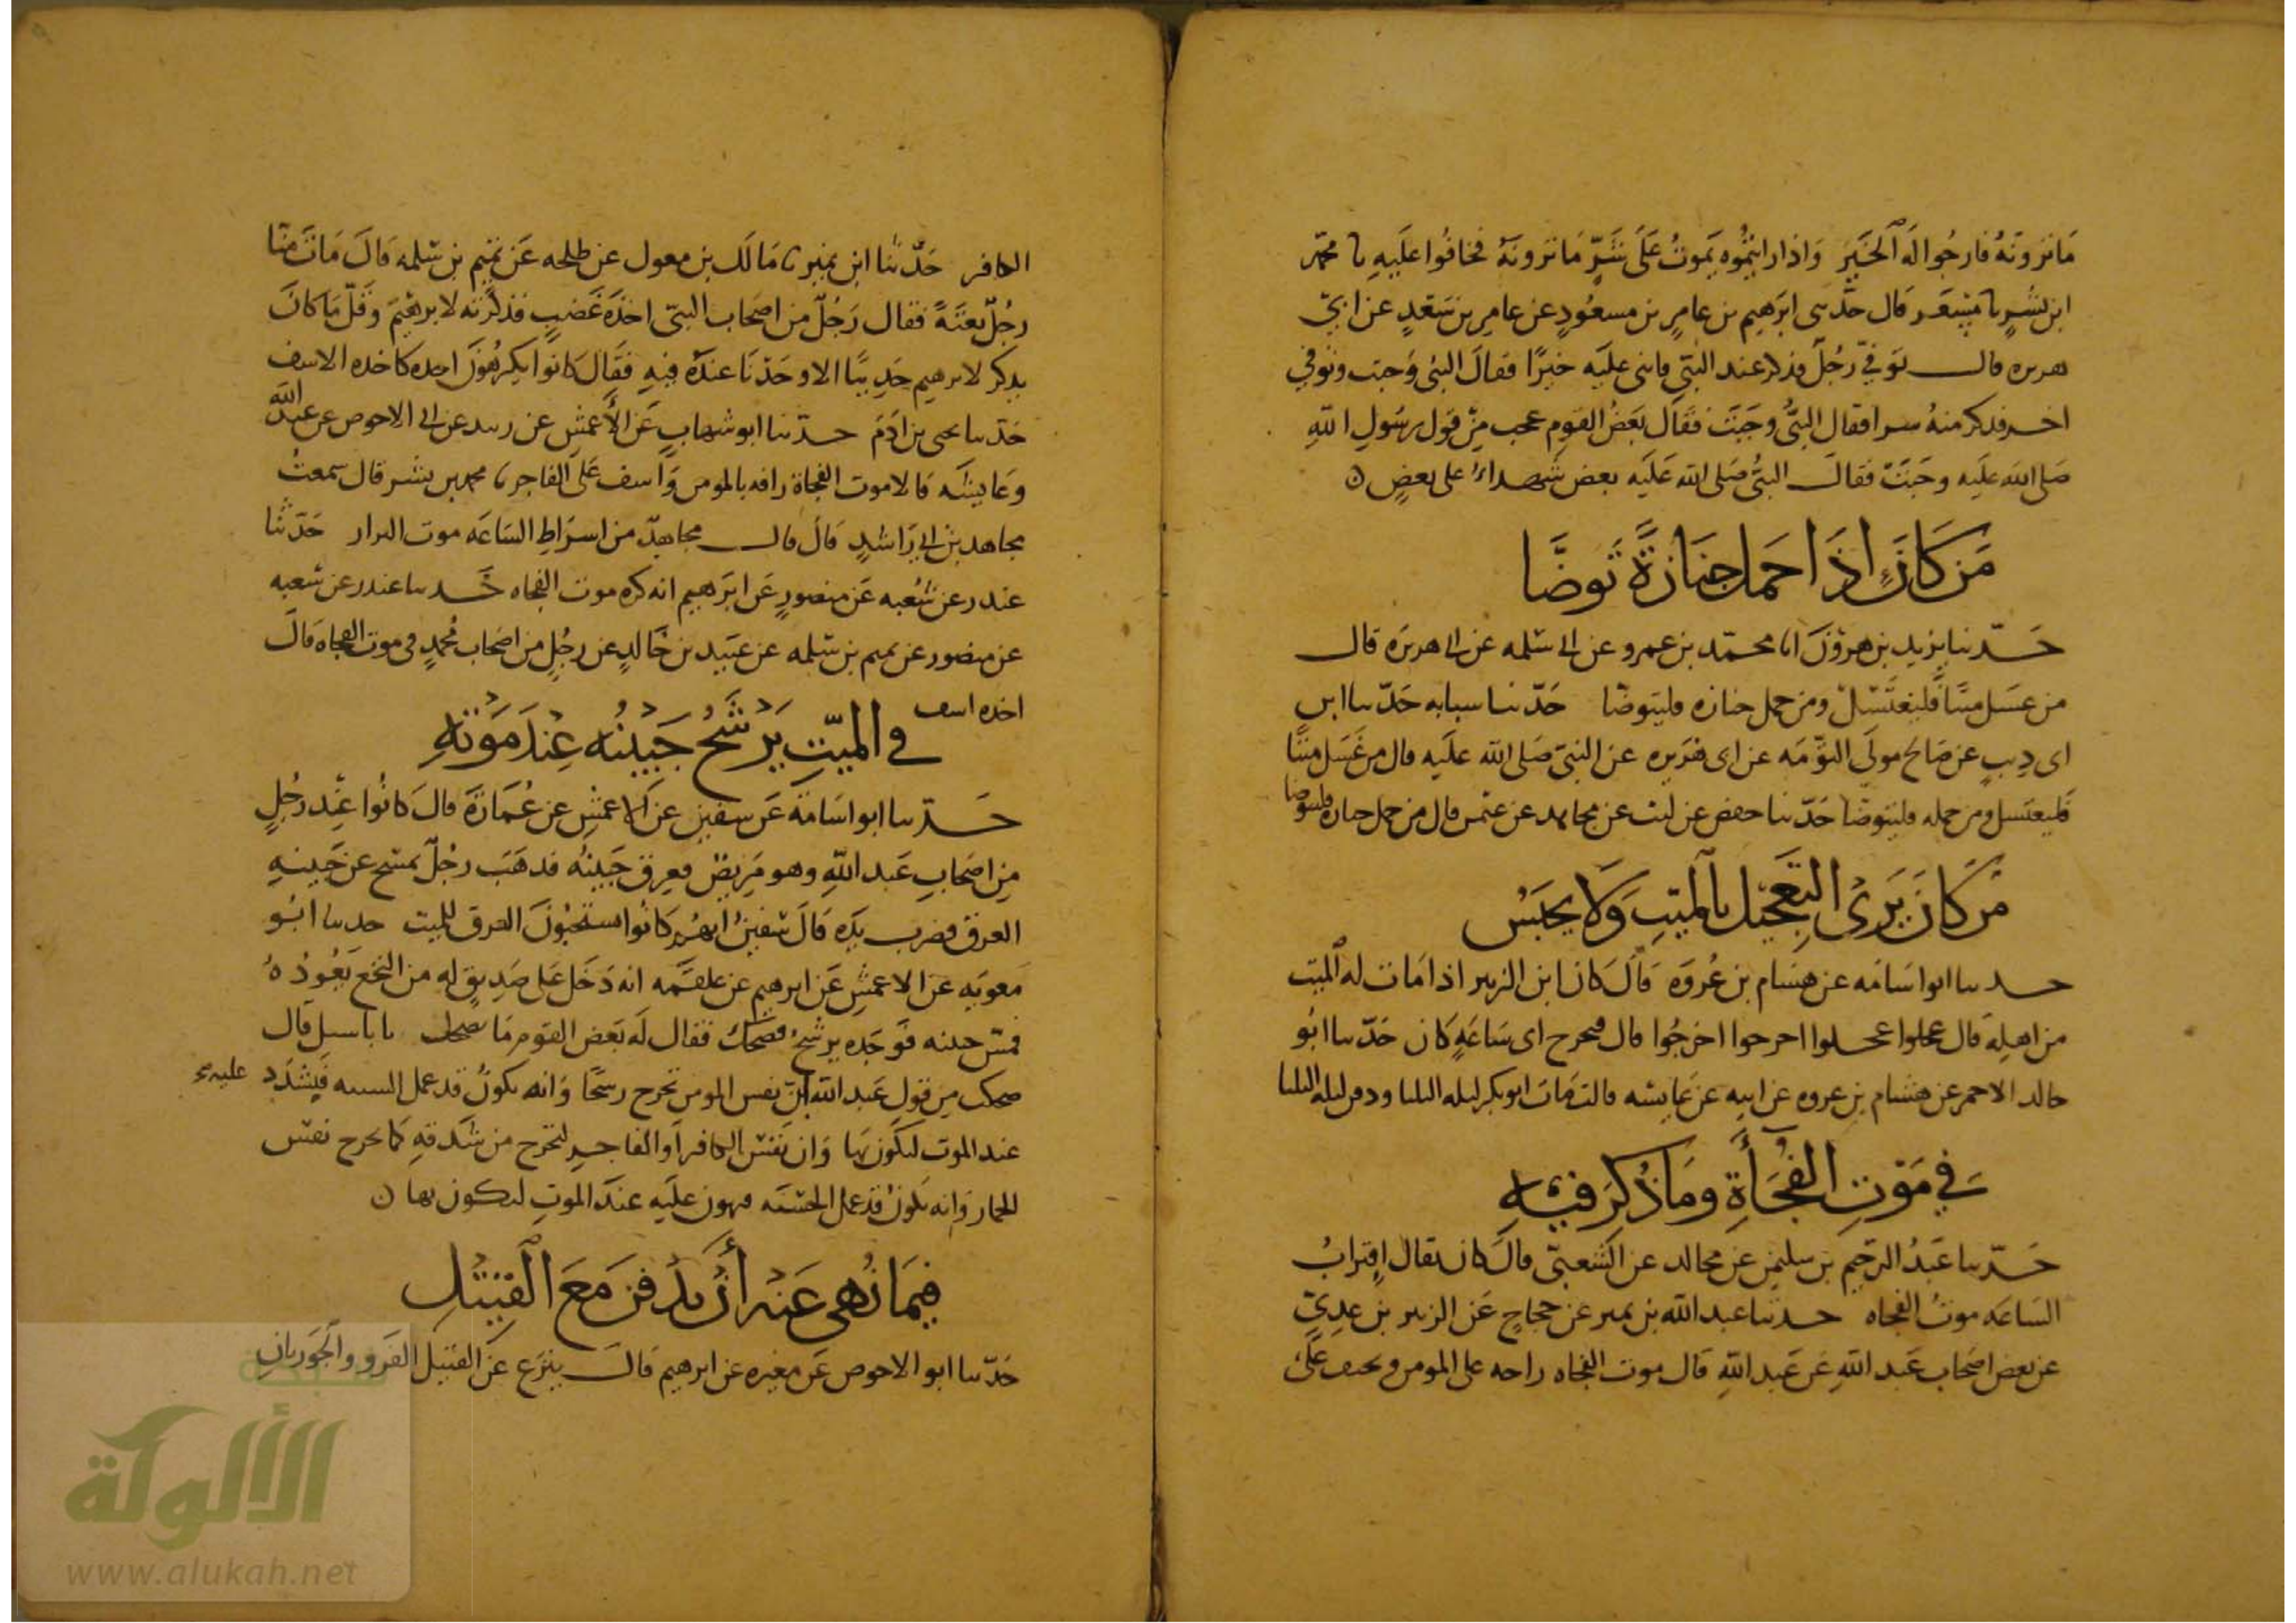 مَا تَرَونَهُ فارجُوا لَه الخَيرَ وَاذا رايتُموه يَموتُ عَلَى شَرِّ مَا تَرونَهُ فخافُوا عليَهِ نا محمّد
ابن بشرٍ نا مِسعَر قال حدّثنى ابرَهيم بن عامرٍ بن مسعُودٍ عن عامرِ بن سَعْدٍ عن ابي
هريره قال توفيّ رَجُلٌ فذكر عند النبّى فاثنى عليَه خيرًا فقالَ النبي وَجبت وتوفي
اخر فذكر منهُ سرا فقال النبيُّ وجَبَتَ فقَال بعَضُ القوم عجب مِنْ قَول رسُولِ اللّهِ
صَلى الله عليَه وجَبَتَ فقال النبيُّ صَلى الله عَليَه بعض شُهداءُ على بعضٍ ن
مَن كَانَ اذَا حَمل جنَازةً تَوضَّا
حَدّثنا يزيد بن هرونَ انا محمّد بن عمرو عن ابى سَلمه عن ابى هريرَه قال
من غسَل ميتًا فليَغتَسل ومن حمل جنازه فليتوضّا حَدّثنا سبابه حَدّثنا ابن
ابى ذيبٍ عن صَالح مولَى التوّمَه عن ابى هُريره عن النبيّ صَلى الله عليَه قال من غسَل ميتًا
فليغتسل ومن حمله فليتوضّا حَدّثنا حفص عن ليث عن مجاهد عن عثمن قال من حمل جنازه فليتوضا
مَن كَانَ يَرَى التَعجِيل بالميّتِ وَلَا يحبَسُ
حدثنا ابو اسَامَه عن هشام بن عُروَه قَالَ كان ابن الزبير اذا مَات له الميّت
من اهلهِ قال عجلوا عجلوا اخرجوا اخرجُوا قال فيخرح اى سَاعَهٍ كَان حَدّثنا ابُو
خالد الاحمر عن هشام بن عروه عن ابيه عن عَايشه قالت مَات ابو بكر ليله الثلثا ودفن ليله الثلثا
في مَوتِ الفُجَأَةِ ومَا ذُكِرَ فيهِ
حَدّثنا عَبدُ الرّحيم بن سليمن عن مجالد عن الشعبيّ قالَ كان يقال اِقترابُ
السَاعَه موتُ الفجاه حدثنا عبد الله بن نمير عن حجاجٍ عَن الزبير بن عدِيٍّ
عن بعض اصَحاب عَبد اللّهِ عَن عَبد اللّهِ قال موت الفجاه راحه على المومن وَاسف عَلَى
الكافر حَدّثنا ابن نمير نا مَالك بن مغول عن طلحه عَن تميم بن سَلمه قالَ مَاتَ منّا
رجُلٌ بغتَةً فقال رَجُلٌ من اصَحاب النبيّ اخذَهَ غَضبٍ فذكرَته لابرهيَمَ وَقلّ مَا كانَ
يذكر لابرهيم حَديثًا الا وحَدْنَا عندَهُ فيهِ فقَال كانوا يكرهُونَ اخذه كاخذه الاسف
حَدّثنا يحيى بن ادَمَ حدّثنا ابو شهابٍ عَن الأَعمَشِ عن زبيد عن ابى الاحوص عن عبد اللّه
وعَايشَه قالا موت الفجاة رافه بالمومن وَاسف عَلى الفاجر نا محمد بن بشر قال سمعتُ
مجاهد بن ابى رَاشدٍ قال قال مجاهدٌ من اسرَاطِ السَاعَه موت البدار حَدّثنا
غندر عن شُعبه عَن منصورٍ عَن ابرَهيم انه كره موت الفجاه حَدثنا غندر عن شعبه
عن منصور عن تميم بن سَلمه عن عبَيد بن خَالدٍ عن رجُلٍ من اصَحاب مُحَمدٍ فى موت الفجاه قالَ
اخذه اسف
في الميّتِ يَرْشَحُ جَبيْنُه عِنْدَ مَوْتهِ
حَدّثنا ابو اسَامَة عَن سفين عن الاعمَشِ عن عُمَارَةَ قالَ كانوا عِنْد رَجُلٍ
مِن اصَحابِ عَبد اللّهِ وهو مَرِيضٌ فعرِق جَبينُه فذهَبَ رجُلٌ يمسَح عن جَبينهِ
العرق فضرب يدَه قَالَ سُفينُ انهُم كانوا يستحبُونَ العَرق للميت حدثنا ابُو
مَعويَه عن الاعمشِ عَن ابرهيم عن علقَمه انه دَخَل عَلى صَدِيقٍ له من النخَع يَعُودُهُ
فمَسّ جبينه فوَجَدَه يرشحُ فضحك فقال لَه بَعض القوم مَا يضحك يا باسبل قال
ضحكت مِن قول عَبد اللهِ انّ نفس المومن تخرح رسحًا وَانه يكونُ قد عمل السيه فيُشَدّد عليه
عند الموت ليكَون بهَا وَان نَفسَ الكافر اَو الفاجر لتخرح من شدقهِ كمَا يخرح نفس
الحمار وَانه يكونُ قد عمل الحَسنَه فيهون عليَه عندَ الموتِ ليكون بها ن
فيمَا نُهى عَنهُ أَن يُدفن مَعَ القَتيلِ
حَدّثنا ابو الاحوص عَن مغيره عن ابرهيم قال ينزَع عَن القتيل الفَرو والجَوربانِ
الألوكة
www.alukah.net